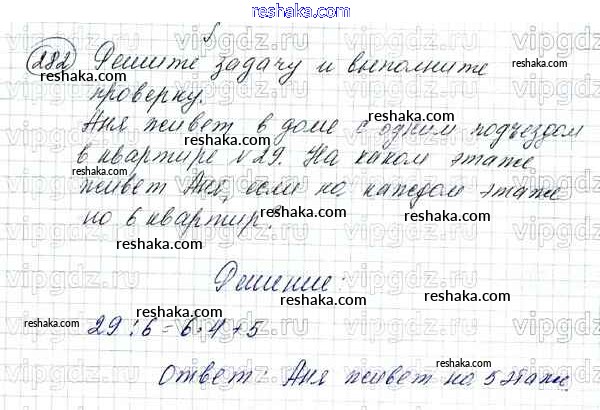 reshaka.com
282 Решите задачу и выполните
проверку.
Аня живет в доме с одним подъездом
в квартире №29. На каком этаже
живет Аня, если на каждом этаже
по 6 квартир?
Решение:
29 : 6 = 6 · 4 + 5
Ответ: Аня живет на 5 этаже.